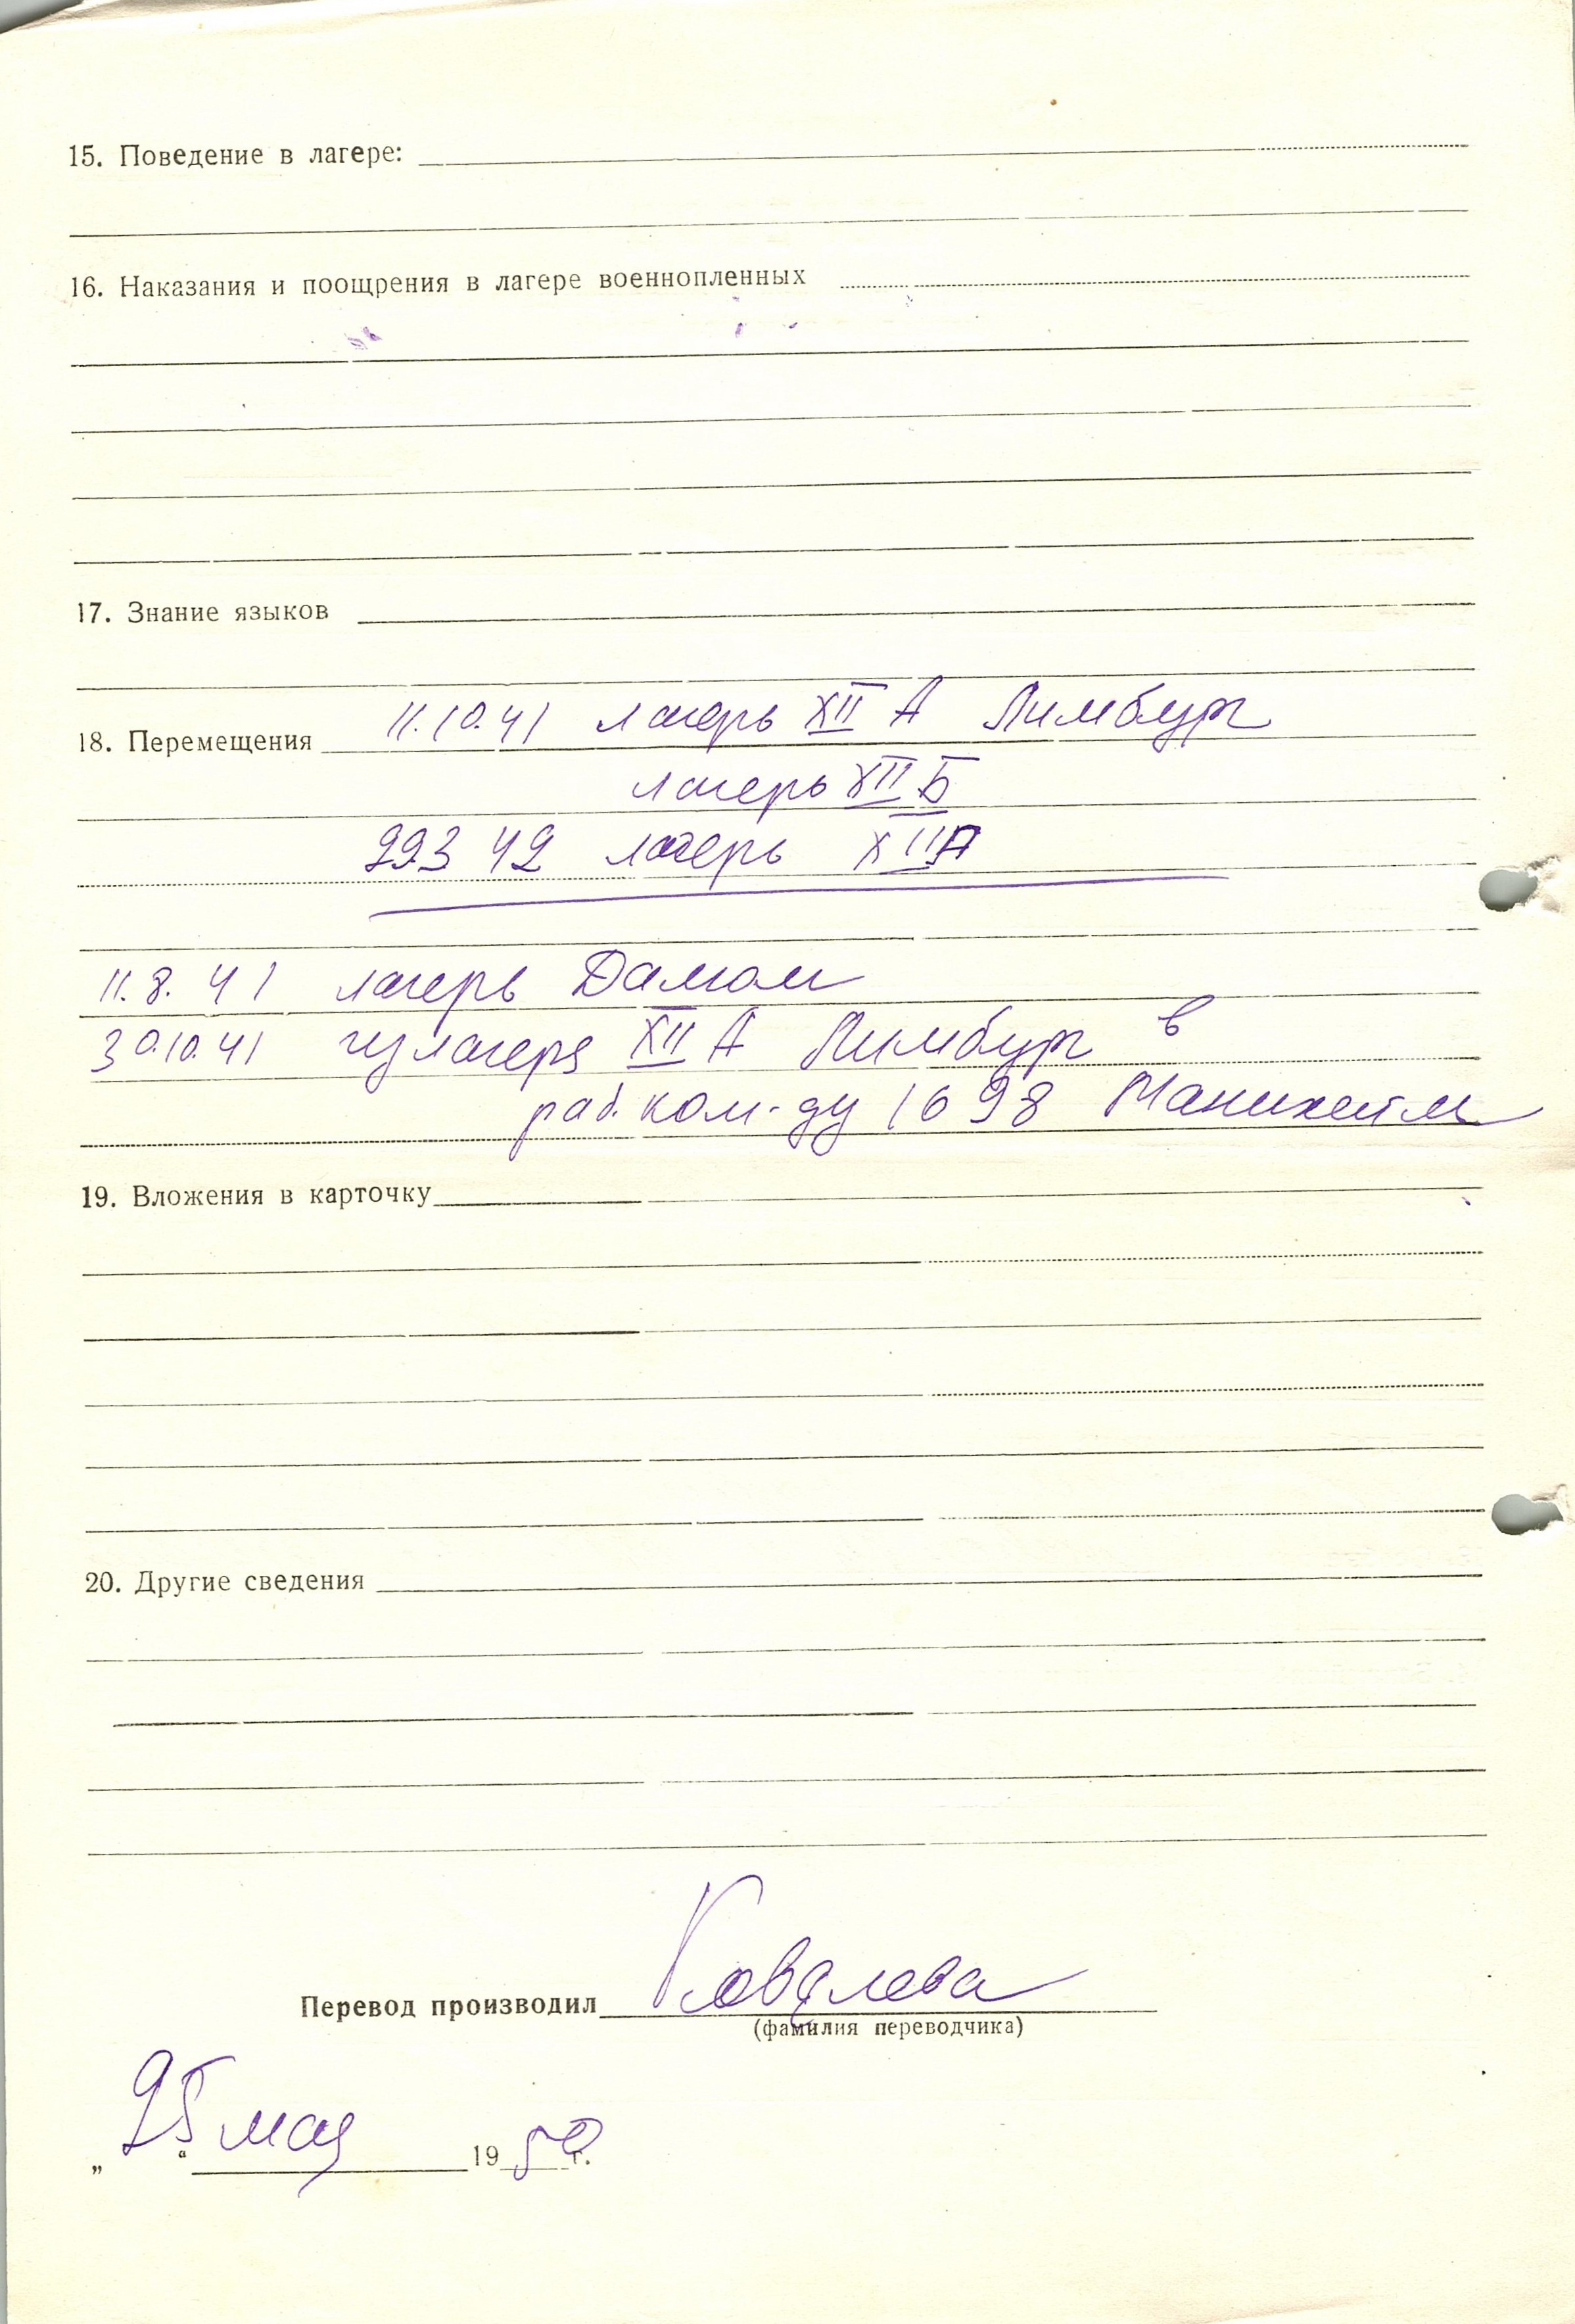 15. Поведение в лагере:
16. Наказания и поощрения в лагере военнопленных
17. Знание языков
18. Перемещения 11.10.41 лагерь XII А Лимбург
лагерь XII Б
22.3 42 лагерь XII А
11.8.41 лагерь
30.10.41 из лагеря XII А Лимбург в
раб. ком-ду 1698 Манихейм
19. Вложения в карточку
20. Другие сведения
Перевод производил Ковалева
(фамилия переводчика)
„25“ мая 1950 г.